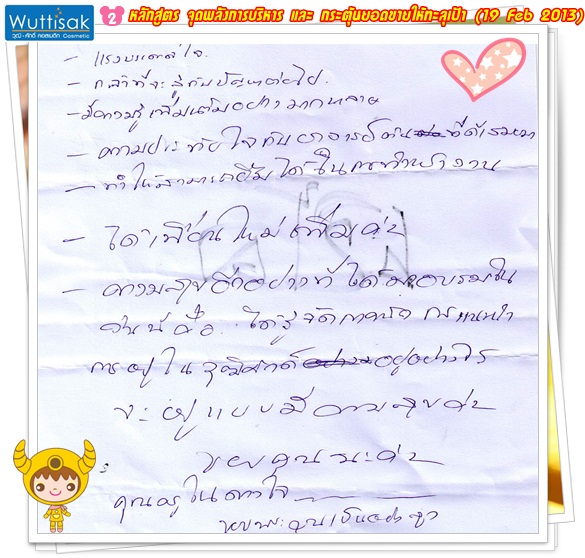 Wuttisak
วุฒิ-ศักดิ์ คอสเมติก Cosmetic
2 หลักสูตร จุดพลังการบริหาร และ กระตุ้นยอดขายให้ทะลุเป้า (19 Feb 2013)
- แรงบันดาลใจ
- กล้าที่จะสู้กับปัญหาต่อไป
- มีความรู้เพิ่มเติมอย่างมากหลาย
- ความประทับใจกับอาจารย์ ที่ได้เรียนมา
- ทำให้สามารถยิ้มได้ในการทำงาน
- ได้เพื่อนใหม่เพิ่มค่ะ
- ความสุขอีกอย่างที่ได้มาอบรมใน
วันนี้คือ ได้รู้จัก การแนะนำ
การอยู่ในวุฒิศักดิ์ อยู่อย่างไร
จะอยู่แบบมีความสุขค่ะ
ขอบคุณนะค่ะ
คุณอยู่ในดวงใจ